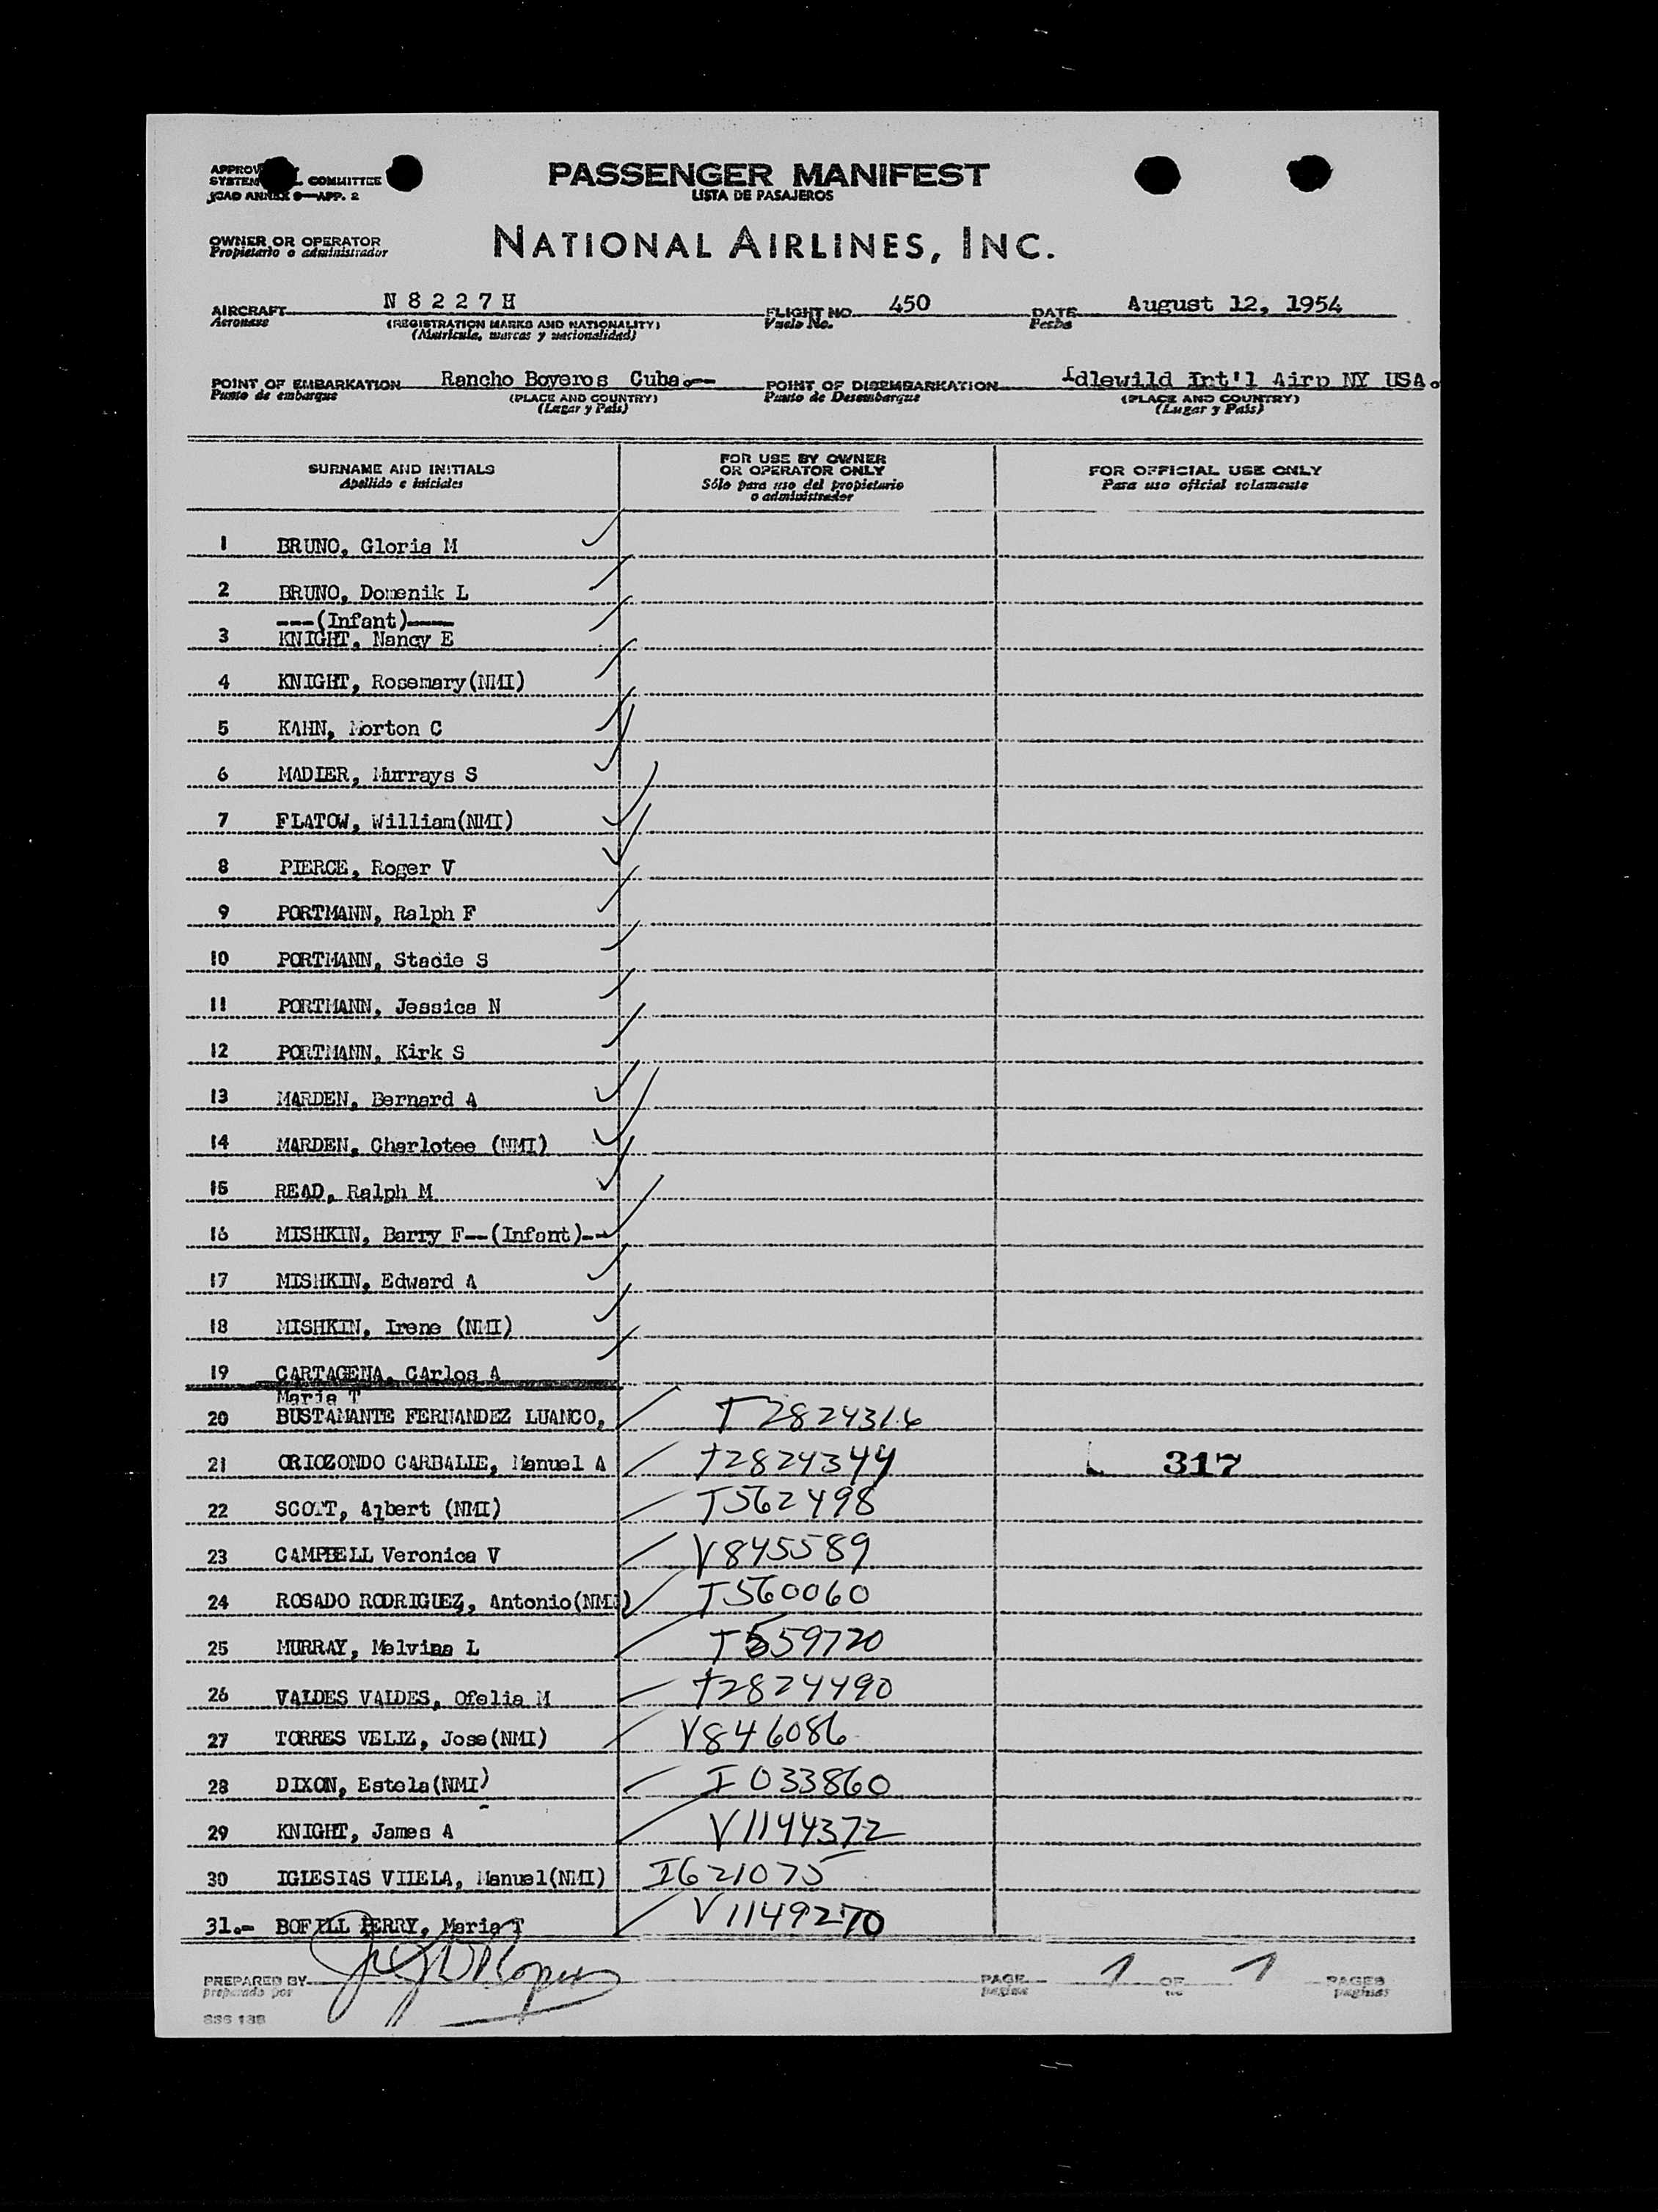 PASSENGER MANIFEST
LISTA DE PASAJEROS
SYSTEM COMMITTEE
ANNEX 9—APP. 2
OWNER OR OPERATOR
Propietario o administrador
NATIONAL AIRLINES, INC.
AIRCRAFT N 8 2 2 7 H FLIGHT NO. 450 DATE August 12, 1954
Aeronave (REGISTRATION MARKS AND NATIONALITY) Vuelo No. Fecha
(Matricula, marcas y nacionalidad)
POINT OF EMBARKATION Rancho Boyeros Cuba.— POINT OF DISEMBARKATION Idlewild Int'l Airp NY USA.
Punto de embarque (PLACE AND COUNTRY) Punto de Desembarque (PLACE AND COUNTRY)
(Lugar y País) (Lugar y País)
SURNAME AND INITIALS
Apellido e iniciales
FOR USE BY OWNER
OR OPERATOR ONLY
Sólo para uso del propietario
o administrador
FOR OFFICIAL USE ONLY
Para uso oficial solamente
1 BRUNO, Gloria M
2 BRUNO, Domenik L
---(Infant)----
3 KNIGHT, Nancy E
4 KNIGHT, Rosemary(NMI)
5 KAHN, Morton C
6 MADIER, Murrays S
7 FLATOW, William(NMI)
8 PIERCE, Roger V
9 PORTMANN, Ralph F
10 PORTMANN, Stacie S
11 PORTMANN, Jessica N
12 PORTMANN, Kirk S
13 MARDEN, Bernard A
14 MARDEN, Charlotee (NMI)
15 READ, Ralph M
16 MISHKIN, Barry F--(Infant)--
17 MISHKIN, Edward A
18 MISHKIN, Irene (NMI)
19 CARTAGENA, CArlos A
Maria T
20 BUSTAMANTE FERNANDEZ LUANCO, T2824316
21 ORIOZONDO CARBALLE, Manuel A T2824344 L 317
22 SCOTT, Albert (NMI) T562498
23 CAMPBELL Veronica V V845589
24 ROSADO RODRIGUEZ, Antonio(NMI) T560060
25 MURRAY, Melvina L T559720
26 VALDES VALDES, Ofelia M T2824490
27 TORRES VELIZ, Jose(NMI) V846086
28 DIXON, Estela(NMI) I033860
29 KNIGHT, James A V1144372
30 IGLESIAS VILELA, Manuel(NMI) I621075
31.- BOFILL PERRY, Maria T V1149270
PREPARED BY PAGE 1 OF 1 PAGES
preparado por pagina de paginas